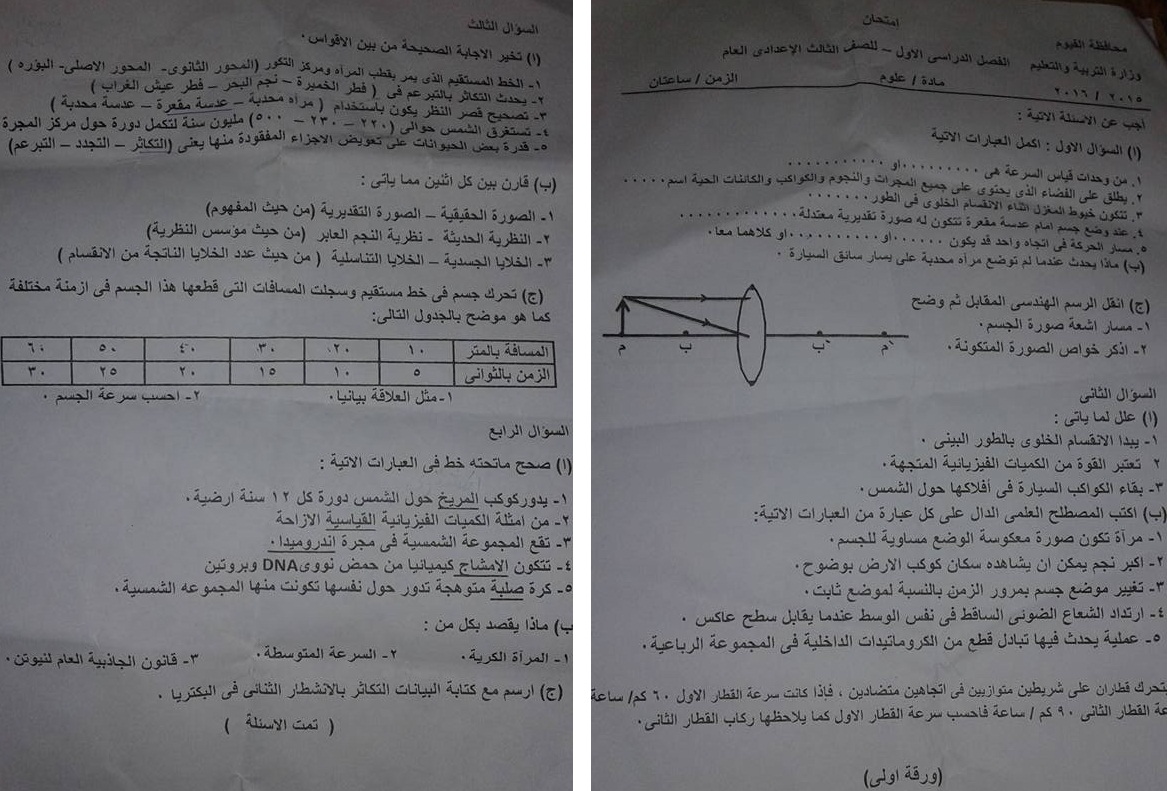 امتحان
محافظة الفيوم
وزارة التربية والتعليم الفصل الدراسى الاول – للصف الثالث الإعدادى العام
٢٠١٥ / ٢٠١٦ مادة / علوم الزمن / ساعتان
أجب عن الاسئلة الاتية :
(ا) السؤال الاول : اكمل العبارات الاتية
١. من وحدات قياس السرعة هى .......... او ..........
٢. يطلق على الفضاء الذى يحتوى على جميع المجرات والنجوم والكواكب والكائنات الحية اسم.....
٣. تتكون خيوط المغزل اثناء الانقسام الخلوى فى الطور.......
٤. عند وضع جسم امام عدسة مقعرة تتكون له صورة تقديرية معتدلة............
٥. مسار الحركة فى اتجاه واحد قد يكون ......او..........او كلاهما معا.
(ب) ماذا يحدث عندما لم توضع مرأه محدبة على يسار سائق السيارة .
(ج) انقل الرسم الهندسى المقابل ثم وضح
١- مسار اشعة صورة الجسم.
٢- اذكر خواص الصورة المتكونة.
م ب ب` م`
السؤال الثانى
(ا) علل لما ياتى :
١- يبدا الانقسام الخلوى بالطور البينى .
٢ تعتبر القوة من الكميات الفيزيانية المتجهة.
٣- بقاء الكواكب السيارة فى أفلاكها حول الشمس.
(ب) اكتب المصطلح العلمى الدال على كل عبارة من العبارات الاتية:
١- مرآة تكون صورة معكوسة الوضع مساوية للجسم.
٢- اكبر نجم يمكن ان يشاهده سكان كوكب الارض بوضوح.
٣- تغيير موضع جسم بمرور الزمن بالنسبة لموضع ثابت.
٤- ارتداد الشعاع الضوئى الساقط فى نفس الوسط عندما يقابل سطح عاكس .
٥- عملية يحدث فيها تبادل قطع من الكروماتيدات الداخلية فى المجموعة الرباعية.
يتحرك قطاران على شريطين متوازيين فى اتجاهين متضادين ، فإذا كانت سرعة القطار الاول ٦٠ كم/ ساعة
القطار الثانى ٩٠ كم / ساعة فاحسب سرعة القطار الاول كما يلاحظها ركاب القطار الثانى.
(ورقة اولى)
السؤال الثالث
(ا) تخير الاجابة الصحيحة من بين الاقواس .
١- الخط المستقيم الذى يمر بقطب المرآه ومركز التكور (المحور الثانوى- المحور الاصلى- البؤره )
٢- يحدث التكاثر بالتبرعم فى ( فطر الخميرة – نجم البحر – فطر عيش الغراب )
٣- تصحيح قصر النظر يكون باستخدام ( مرآه محدبة – عدسة مقعرة – عدسة محدبة )
٤- تستغرق الشمس حوالى (٢٢٠ – ٢٣٠ – ٥٠٠) مليون سنة لتكمل دورة حول مركز المجرة
٥- قدرة بعض الحيوانات على تعويض الاجزاء المفقودة منها يعنى (التكاثر – التجدد – التبرعم)
(ب) قارن بين كل اثنين مما ياتى :
١- الصورة الحقيقية – الصورة التقديرية (من حيث المفهوم)
٢- النظرية الحديثة - نظرية النجم العابر (من حيث مؤسس النظرية)
٣- الخلايا الجسدية – الخلايا التناسلية ( من حيث عدد الخلايا الناتجة من الانقسام )
(ج) تحرك جسم فى خط مستقيم وسجلت المسافات التى قطعها هذا الجسم فى ازمنة مختلفة
كما هو موضح بالجدول التالى:
المسافة بالمتر ١٠ ٢٠ ٣٠ ٤٠ ٥٠ ٦٠
الزمن بالثوانى ٥ ١٠ ١٥ ٢٠ ٢٥ ٣٠
١-مثل العلاقة بيانيا. ٢- احسب سرعة الجسم .
السؤال الرابع
(ا) صحح ماتحته خط فى العبارات الاتية :
١- يدوركوكب المريخ حول الشمس دورة كل ١٢ سنة ارضية.
٢- من امثلة الكميات الفيزيانية القياسية الازاحة
٣- تقع المجموعة الشمسية فى مجرة اندروميدا.
٤- تتكون الامشاج كيميانيا من حمض نووىDNA وبروتين
٥- كرة صلبة متوهجة تدور حول نفسها تكونت منها المجموعه الشمسية.
ب) ماذا يقصد بكل من :
١- المرآة الكرية. ٢- السرعة المتوسطة. ٣- قانون الجاذبية العام لنيوتن.
(ج) ارسم مع كتابة البيانات التكاثر بالانشطار الثنائى فى البكتريا .
( تمت الاسئلة )